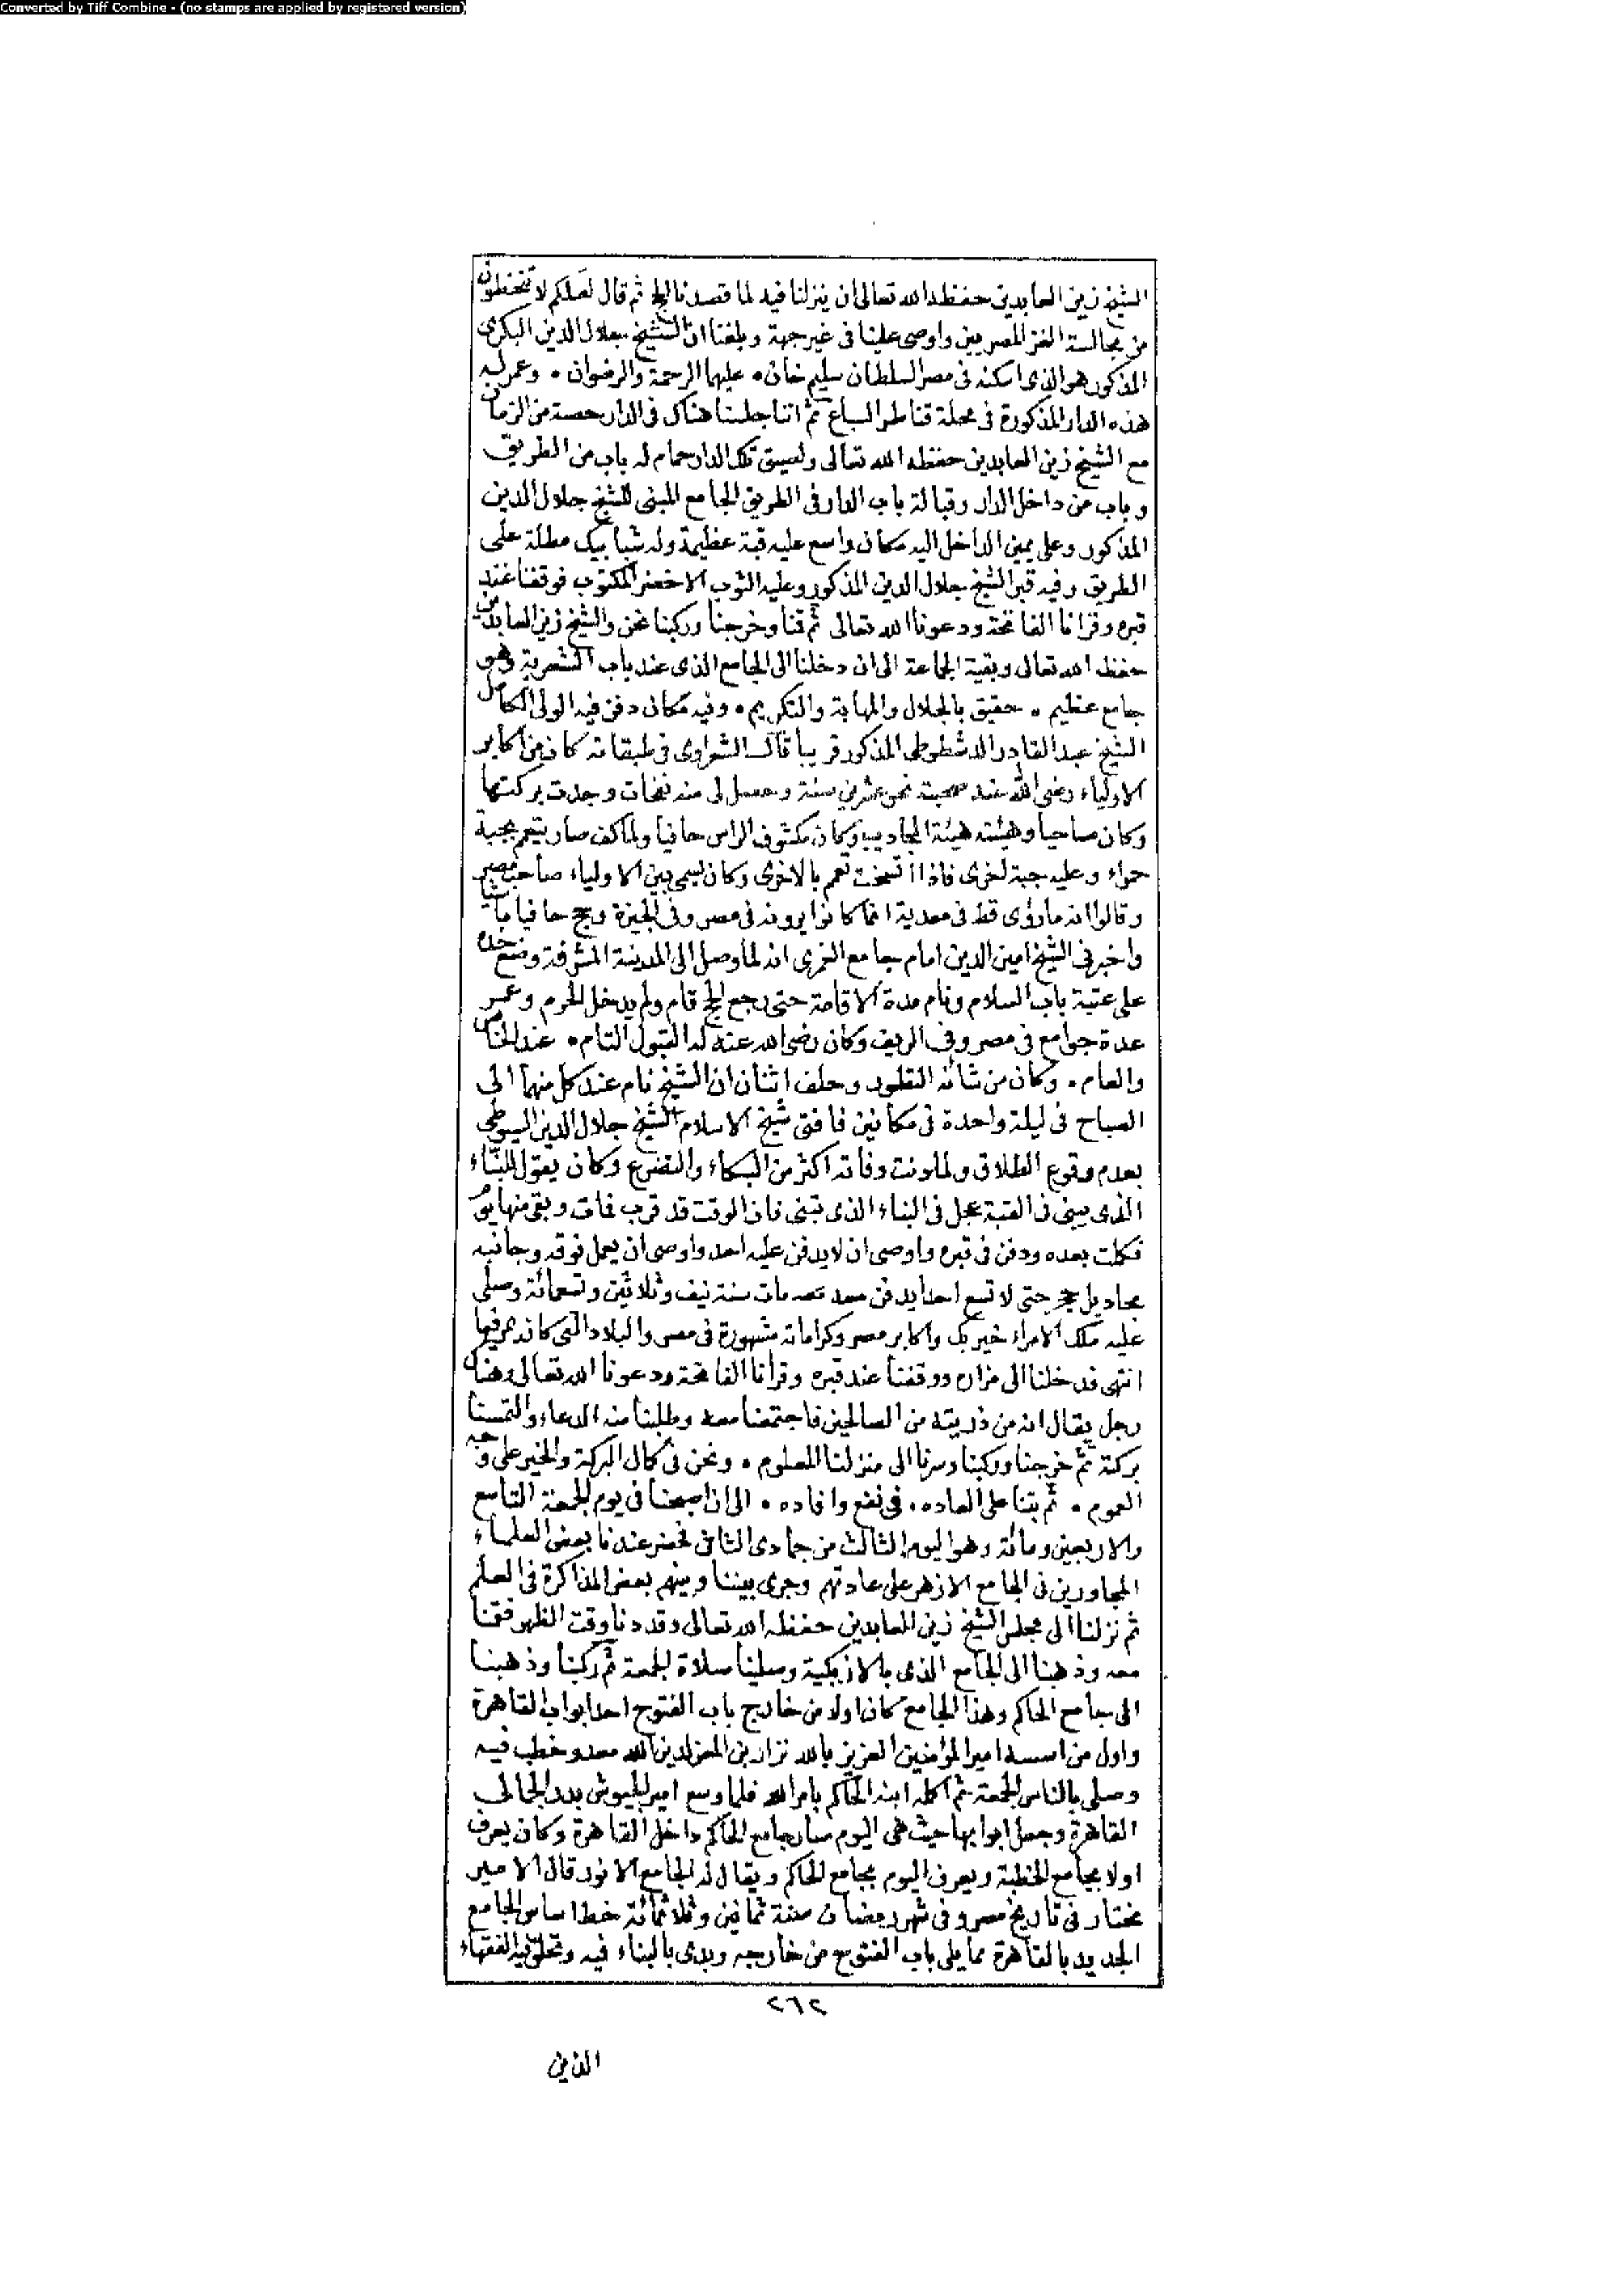 Converted by Tiff Combine - (no stamps are applied by registered version)
الشيخ زين العابدين حفظه الله تعالى ان ينزلنا فيه لما قصدنا ثم قال لعلكم لا تحتفظون
من مجالسة الغز المصريين واوصى علينا فى غير جهة وبلغنا ان الشيخ جلال الدين البكرى
المذكور هو الذى اسكنه فى مصر السلطان سليم خان • عليهما الرحمة والرضوان • وعمر له
هذه الدار المذكورة فى محلة قناطر السباع ثم اننا جلسنا هناك فى الدار حصة من الزمان
مع الشيخ زين العابدين حفظه الله تعالى ولصيق تلك الدار حمام له باب من الطريق
وباب من داخل الدار وقبالة باب الدار فى الطريق الجامع المبنى للشيخ جلال الدين
المذكور وعلى يمين الداخل اليه مكان واسع عليه قبة عظيمة وله شبابيك مطلة على
الطريق وفيه قبر الشيخ جلال الدين المذكور وعليه الثوب الاخضر المكتوب فوقفنا عند
قبره وقرانا الفاتحة ودعونا الله تعالى ثم قمنا وخرجنا وركبنا نحن والشيخ زين العابدين
حفظه الله تعالى وبقية الجماعة الى ان دخلنا الى الجامع الذى عند باب الشعرية وهو
جامع عظيم • حقيق بالجلال والمهابة والتكريم • وفيه مكان دفن فيه الولى الكامل
الشيخ عبد القادر الدشطوطى المذكور قريبا قال الشعراوى فى طبقاته كان من اكابر
الاولياء رضى الله عنه صحبته نحو عشرين سنة وحصل لى منه نفحات وجدت بركتها
وكان صاحيا وهيئته هيئة المجاذيب وكان مكشوف الراس حافيا ولما كف صار يتعمم بجبة
حمراء وعليه جبة اخرى فاذا اتسخت تعمم بالاخرى وكان يسمى بين الاولياء صاحب مصر
وقالوا انه ما رؤى قط فى معدية انما كانوا يرونه فى مصر وفى الجيزة وحج حافيا ماشيا
واخبرنى الشيخ امين الدين امام جامع الغمرى انه لما وصل الى المدينة المشرفة وضع خده
على عتبة باب السلام ونام مدة الاقامة حتى رجع الحج قام ولم يدخل الحرم وعمر
عدة جوامع فى مصر وفى الريف وكان رضى الله عنه له القبول التام • عند الخاص
والعام • وكان من شأنه التطور وحلف اثنان ان الشيخ نام عند كل منهما الى
الصباح فى ليلة واحدة فى مكانين فافتى شيخ الاسلام الشيخ جلال الدين السيوطى
بعدم وقوع الطلاق ولما دنت وفاته اكثر من البكاء والتضرع وكان يقول للبناء
الذى يبنى فى القبة عجل فى البناء الذى تبنى فان الوقت قد قرب فمات وبقى منها يوم
فكملت بعده ودفن فى قبره واوصى ان لا يدفن عليه احد واوصى ان يعمل فوقه وجانبه
مجاديل حجر حتى لا تسع احدا يدفن معه مات سنة نيف وثلاثين وتسعمائة وصلى
عليه ملك الامراء خير بك واكابر مصر وكراماته مشهورة فى مصر والبلاد التى كان يعرفها
انتهى فدخلنا الى مزاره ووقفنا عند قبره وقرأنا الفاتحة ودعونا الله تعالى وهناك
رجل يقال انه من ذريته من الصالحين فاجتمعنا معه وطلبنا منه الدعاء والتمسنا
بركته ثم خرجنا وركبنا وسرنا الى منزلنا المعلوم • ونحن فى كمال البركة والخير على وجه
العموم • ثم بتنا على العاده • فى نفع وافاده • الى ان اصبحنا فى يوم الجمعة التاسع
والاربعين ومائة وهو اليوم الثالث من جمادى الثانى فحضر عندنا بعض العلماء
المجاورين فى الجامع الازهر على عادتهم وجرى بيننا وبينهم بعض المذاكرة فى العلم
ثم نزلنا الى مجلس الشيخ زين العابدين حفظه الله تعالى وقد دنا وقت الظهر فقمنا
معه وذهبنا الى الجامع الذى بالازبكية وصلينا صلاة الجمعة ثم ركبنا وذهبنا
الى جامع الحاكم وهذا الجامع كان اولا من خارج باب الفتوح احد ابواب القاهرة
واول من اسسه امير المؤمنين العزيز بالله نزار بن المعز لدين الله معد وخطب فيه
وصلى بالناس الجمعة ثم اكمله ابنه الحاكم بامر الله فلما وسع امير الجيوش بدر الجمالى
القاهرة وجعل ابوابها حيث هى اليوم صار جامع الحاكم داخل القاهرة وكان يعرف
اولا بجامع الخطبة ويعرف اليوم بجامع الحاكم ويقال له الجامع الانور قال الامير
مختار فى تاريخ مصر وفى شهر رمضان سنة ثمانين وثلاثمائة خط اساس الجامع
الجديد بالقاهرة مما يلى باب الفتوح من خارجه وبدى بالبناء فيه وتحلق فيه الفقهاء
٢٦٢
الذين